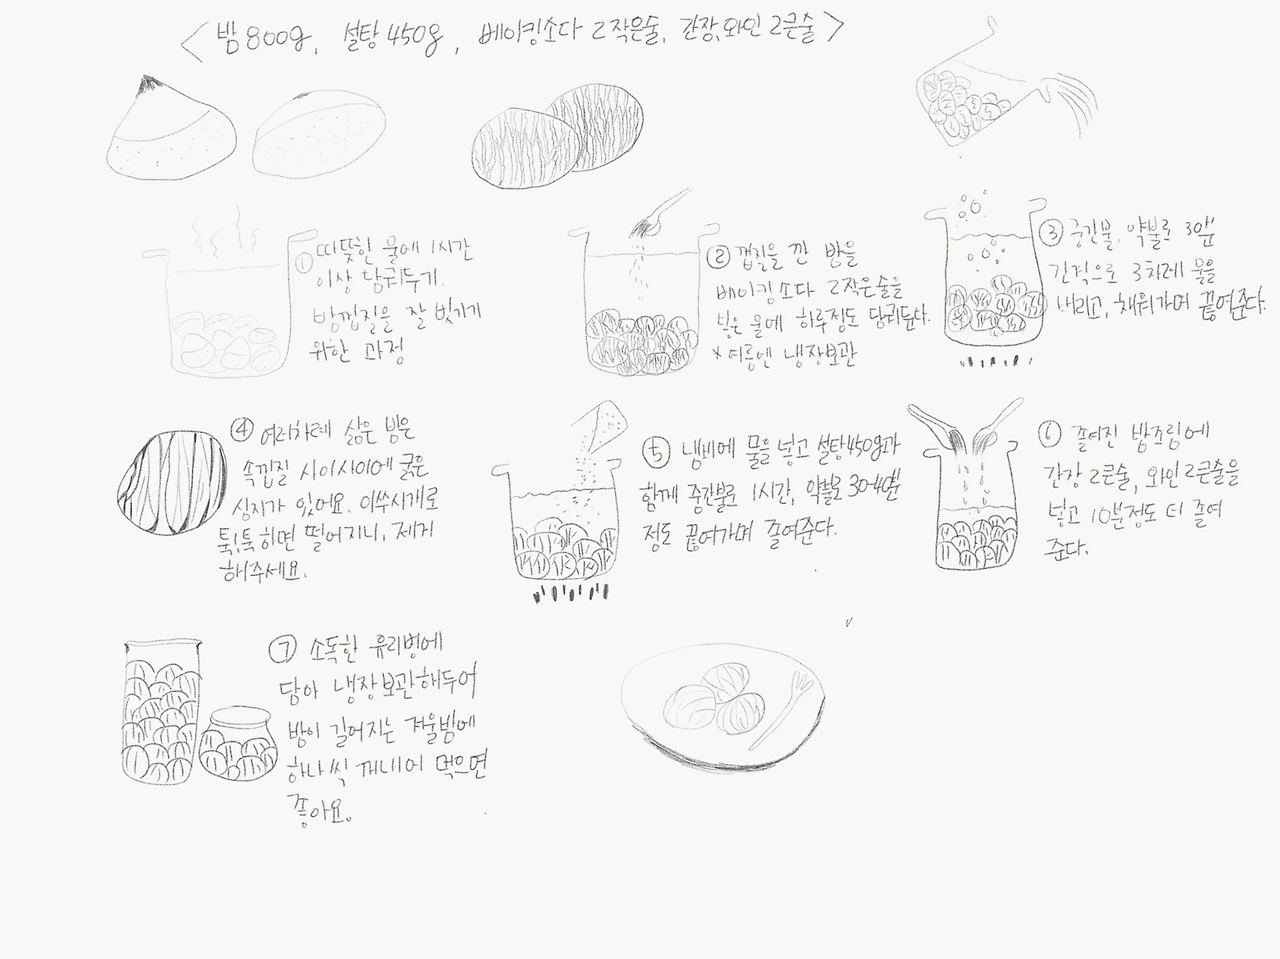 <밤 800g, 설탕 450g, 베이킹소다 2작은술, 간장,와인 2큰술>
① 따뜻한 물에 1시간
이상 담궈두기.
밤껍질을 잘 벗기기
위한 과정
② 껍질을 깐 밤을
베이킹소다 2작은술을
넣은 물에 하루정도 담궈둔다.
* 여름엔 냉장보관
③ 중간불, 약불로 30분
간격으로 3차례 물을
내리고, 채워가며 끓여준다.
④ 여러차례 삶은 밤은
속껍질 사이사이에 굵은
심지가 있어요. 이쑤시개로
툭,툭 하면 떨어지니, 제거
해주세요.
⑤ 냄비에 물을 넣고 설탕450g과
함께 중간불로 1시간, 약불로 30-40분
정도 끓여가며 졸여준다.
⑥ 졸여진 밤조림에
간장 2큰술, 와인 2큰술을
넣고 10분정도 더 졸여
준다.
⑦ 소독한 유리병에
담아 냉장보관해두어
밤이 길어지는 겨울밤에
하나씩 꺼내어 먹으면
좋아요.